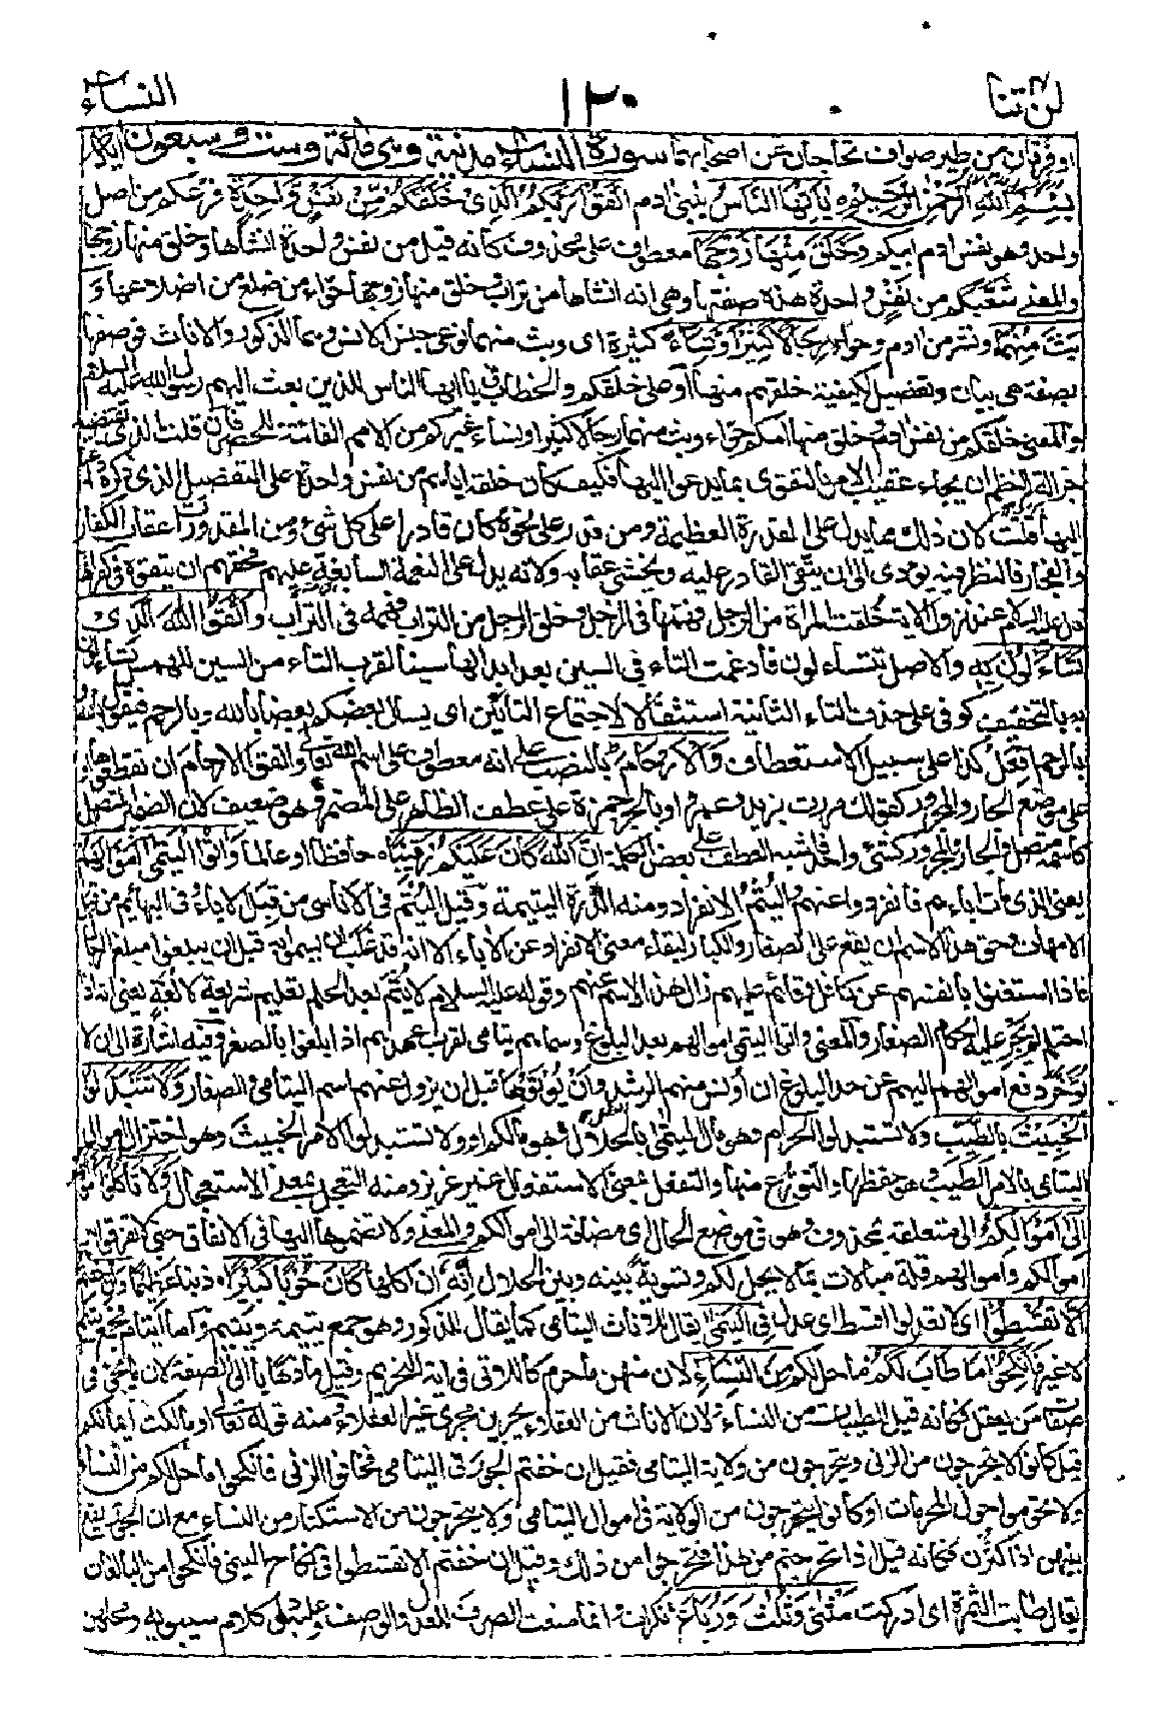 لن تنا ١٢٠ النساء
او فرقان من طير صواف تحاجان عن اصحابهما سورة النساء مدنية وهى مائة وست وسبعون اية
بسم الله الرحمن الرحيم يا ايها الناس يا بنى ادم اتقوا ربكم الذى خلقكم من نفس واحدة فرعكم من اصل
واحد وهو نفس ادم ابيكم وخلق منها زوجها معطوف على محذوف كانه قيل من نفس واحدة انشاها وخلق منها زوجها
والمعنى شعبكم من نفس واحدة هذه صفتها وهى انه انشاها من تراب وخلق منها زوجها حواء من ضلع من اضلاعها و
بث منهما ونشر من ادم وحواء رجالا كثيرا ونساء كثيرة اى وبث منهما نوعى جنس الانس وهما الذكور والاناث فوصفها
بصفة هى بيان وتفصيل لكيفية خلقهم منها او على خلقكم والخطاب فى يا ايها الناس للذين بعث اليهم رسول الله عليه السلام
والمعنى خلقكم من نفس ادم وخلق منها امكم حواء وبث منهما رجالا كثيرا ونساء غيركم من الامم الفائتة للحصر فان قلت الذى تقتضيه
جزالة النظم ان يجاء عقيب الامر بالتقوى بما يدعو اليها فكيف كان خلقه اياهم من نفس واحدة على التفصيل الذى ذكره داعيا
اليها قلت لان ذلك مما يدل على القدرة العظيمة ومن قدر على نحوه كان قادرا على كل شىء ومن المقدورات عقاب الكفار
والفجار فالنظر فيه يودى الى ان يتقى القادر عليه ويخشى عقابه ولانه يدل على النعمة السابغة عليهم فحقهم ان يتقوه فى كفرانها
قال عليه السلام عند نزول الاية خلقت المراة من الرجل فهمها فى الرجل وخلق الرجل من التراب فهمه فى التراب واتقوا الله الذى
تساءلون به والاصل تتساءلون فادغمت التاء فى السين بعد ابدالها سينا لقرب التاء من السين للهمس تساءلون
به بالتخفيف كوفى على حذف التاء الثانية استثقالا لاجتماع التائين اى يسال بعضكم بعضا بالله وبالرحم فيقول بالله
وبالرحم افعل كذا على سبيل الاستعطاف والارحام بالنصب على انه معطوف على اسم الله تعالى اى واتقوا الارحام ان تقطعوها او
على موضع الجار والمجرور كقولك مررت بزيد وعمرا وبالجر حمزة على عطف الظاهر على المضمر وهو ضعيف لان الضمير المتصل
كاسمه متصل والجار والمجرور كشىء واحد فاشبه العطف على بعض الكلمة ان الله كان عليكم رقيبا حافظا او عالما واتوا اليتمى اموالهم
يعنى الذى مات اباءهم فانفردوا عنهم واليتم الانفراد ومنه الدرة اليتيمة وقيل اليتم فى الاناسى من قبل الاباء وفى البهائم من قبل
الامهات وحق هذا الاسم ان يقع على الصغار والكبار لبقاء معنى الانفراد عن الاباء الا انه قد غلب ان يسموا به قبل ان يبلغوا مبلغ الرجال
فاذا استغنوا بانفسهم عن كافل وقائم عليهم زال هذا الاسم عنهم وقوله عليه السلام لا يتم بعد الحلم تعليم شريعة لا لغة يعنى انه اذا
احتلم لم يجر عليه احكام الصغار والمعنى واتوا اليتمى اموالهم بعد البلوغ وسماهم يتامى لقرب عهدهم اذا بلغوا بالصغر وفيه اشارة الى ان لا
يوخر دفع اموالهم اليهم عن حد البلوغ ان اونس منهم الرشد وان يوتوها قبل ان يزول عنهم اسم اليتامى والصغار ولا تتبدلوا
الخبيث بالطيب ولا تستبدلوا الحرام وهو مال اليتمى بالحلال وهو مالكم او ولا تستبدلوا الامر الخبيث وهو اختزال اموال
اليتامى بالامر الطيب وهو حفظها والتورع منها والتفعل بمعنى الاستفعال غير عزيز ومنه التعجل بمعنى الاستعجال ولا تاكلوا اموالهم
الى اموالكم الى متعلقة بمحذوف وهو فى موضع الحال اى مضافة الى اموالكم والمعنى ولا تضموها اليها فى الانفاق حتى لا تفرقوا بين
اموالكم واموالهم قلة مبالات بما لا يحل لكم وتسوية بينه وبين الحلال انه ان اكلها كان حوبا كبيرا ذنبا عظيما وان خفتم
الا تقسطوا اى لا تعدلوا اقسط اى عدل فى اليتمى يقال للاناث اليتامى كما يقال للذكور وهو جمع يتيمة ويتيم واما ايتام فجمع يتيم
لا غير فانكحوا ما طاب لكم ما حل لكم من النساء لان منهن ما حرم كاللاتى فى اية التحريم وقيل ما ذهابا الى الصفة لان ما يجىء فى
صفات من يعقل فكانه قيل الطيبات من النساء ولان الاناث من العقلاء يجرين مجرى غير العقلاء ومنه قوله تعالى او ما ملكت ايمانكم
قيل كانوا لا يتحرجون من الزنى ويتحرجون من ولاية اليتامى فقيل ان خفتم الجور فى اليتامى فخافوا الزنى فانكحوا ما حل لكم من النساء
ولا تحوموا حول المحرمات او كانوا يتحرجون من الولاية فى اموال اليتامى ولا يتحرجون من الاستكثار من النساء مع ان الجور يقع
بينهن اذا كثرن فكانه قيل اذا تحرجتم من هذا فتحرجوا من ذلك وقيل ان خفتم الا تقسطوا فى نكاح اليتمى فانكحوا من البالغات
يقال طابت الثمرة اى ادركت مثنى وثلث ورباع نكرات وانما منعت الصرف للعدل والوصف وعليه دل كلام سيبويه ومحلهن